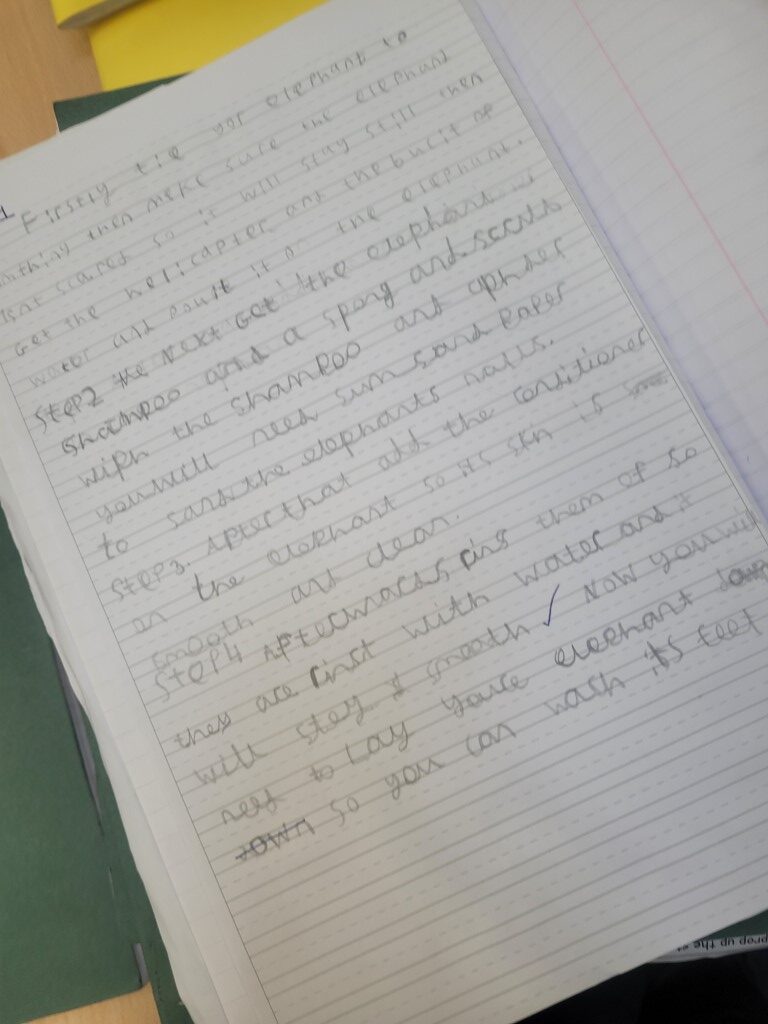 1
Firstly tie yor elephant to
nithing then make sure the elephant
isnt scared so it will stay still then
Get the helicapter ant the bucit of
water and pourt it on the elephant.
Step2 the Next Get the elephant
Shampoo and a spong and scrub
wiph the shampoo ant aphter
you will need sum sand Paper
to sand the elephants nalls.
Step3. After that add the conditioner
on the elephant so its skin is
smooth ant clean.
Step4 Afterwards rins them of so
they are rinst with water and it
will stay smooth ✓ Now you will
need to Lay youre elephant down
down so you can wash its feet
prop up the